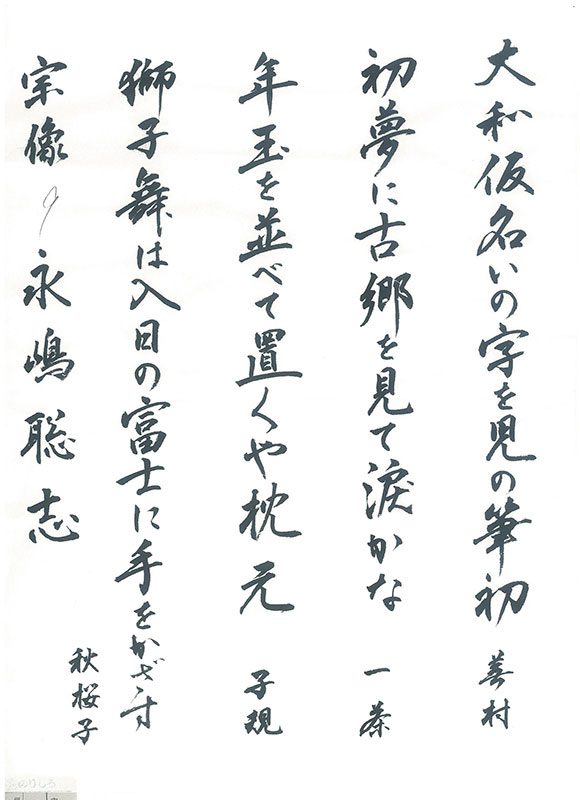 大和仮名いの字を児の筆初 蕪村
初夢に古郷を見て涙かな 一茶
年玉を並べて置くや枕元 子規
獅子舞は入日の富士に手をかざす
秋桜子
宗像 永嶋聡志